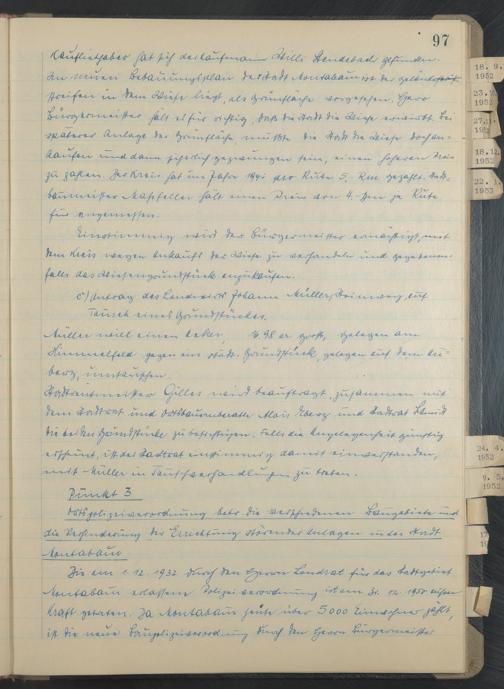 97
Kaufliebhaber hat sich der Kaufmann Willi gefunden.
Im neuen Bebauungsplan der Stadt Montabaur ist der Geländestreifen
in dem die Wiese liegt, als Grünfläche vorgesehen. Herr
Bürgermeister hält es für richtig, daß die Stadt die Wiese erwirbt. Bei
späterer Anlage der Grünfläche müßte die Stadt die Wiese doch
kaufen und dann sicherlich gezwungen sein, einen höheren Preis
zu zahlen. Der Kreis hat im Jahre pro Rute 5,- gezahlt. Stadt-
baumeister hält einen Preis von 4,- je Rute
für angemessen.
Einstimmig wird der Bürgermeister ermächtigt, mit
dem Kreis wegen Ankauf der Wiese zu verhandeln und gegebenen-
falls das Wiesengrundstück anzukaufen.
c) Antrag des Landwirts Johann Müller, auf
Tausch eines Grundstückes.
Müller will einen Acker, 4,98 ar groß, gelegen am
Himmelfeld gegen ein städt. Grundstück, gelegen auf dem
berg, umtauschen.
Stadtrentmeister Gilles wird beauftragt, zusammen mit
dem Stadtrat und Alois und Stadtrat
die beiden Grundstücke zu besichtigen. Falls die Angelegenheit günstig
erscheint, ist der Stadtrat einstimmig damit einverstanden,
mit Müller in Tauschverhandlungen zu treten.
Punkt 3
Ortspolizeiverordnung betr. die verschiedenen Baugebiete und
die Verhinderung der Errichtung störender Anlagen in der Stadt
Montabaur
Die am 1.12.1932 durch den Herrn Landrat für das Stadtgebiet
Montabaur erlassene Polizeiverordnung ist am 31.12.1951 außer
Kraft getreten. Da Montabaur heute über 5000 Einwohner zählt,
ist die neue Baupolizeiverordnung durch den Herrn Bürgermeister
18. 9.
1952
1952
18.
1952
22. 1.
1953
24. 4.
1952
9. 5.
1952